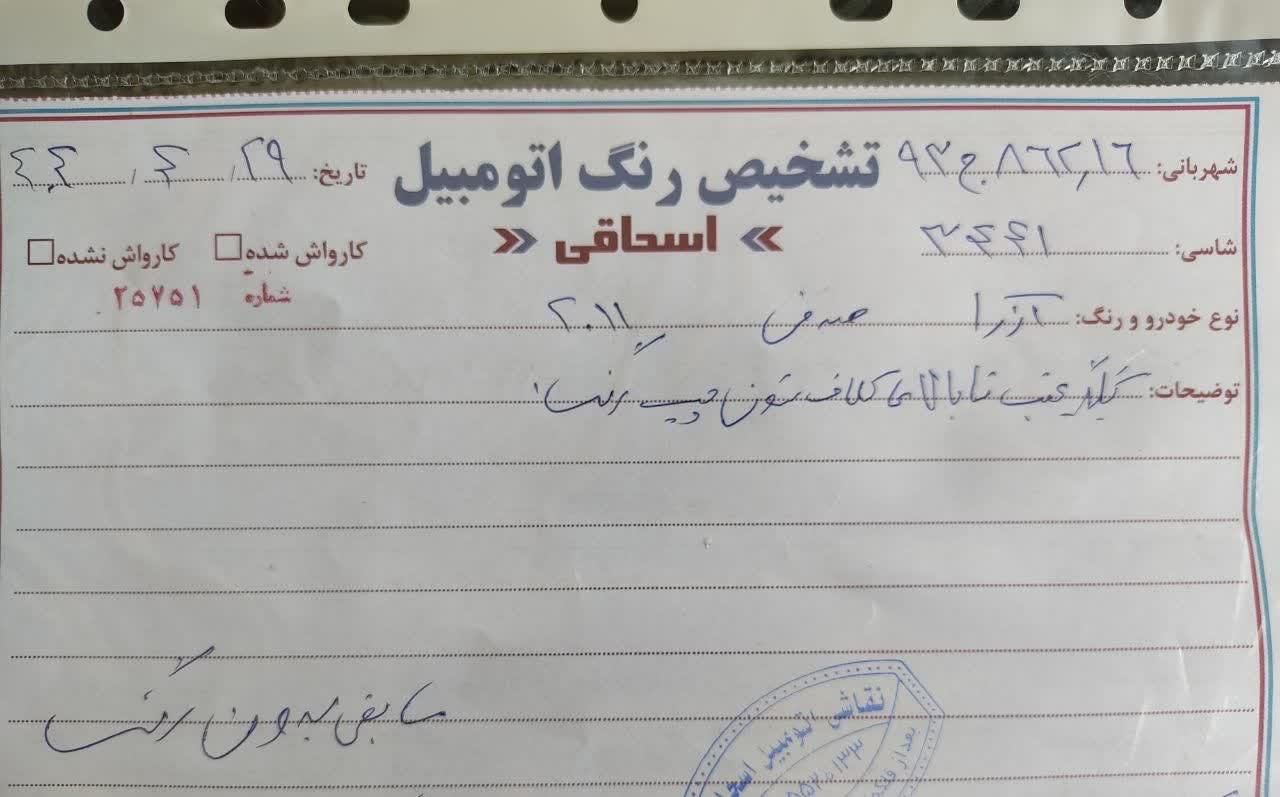 تشخیص رنگ اتومبیل
« اسحاقی »
شهربانی: ۱۶ ۸۶۲ ج ۹۳
تاریخ: ۲۹ / ۴ / ۴۰۴
شاسی: ۳۴۴۱
کارواش شده کارواش نشده
شماره ۲۵۷۵۱
نوع خودرو و رنگ: آزرا صدفی ۲۰۱۱
توضیحات: گلگیر عقب تا بالای کلاف ستون چپ رنگ
مابقی بدون رنگ
نقاشی اتومبیل
بعد از